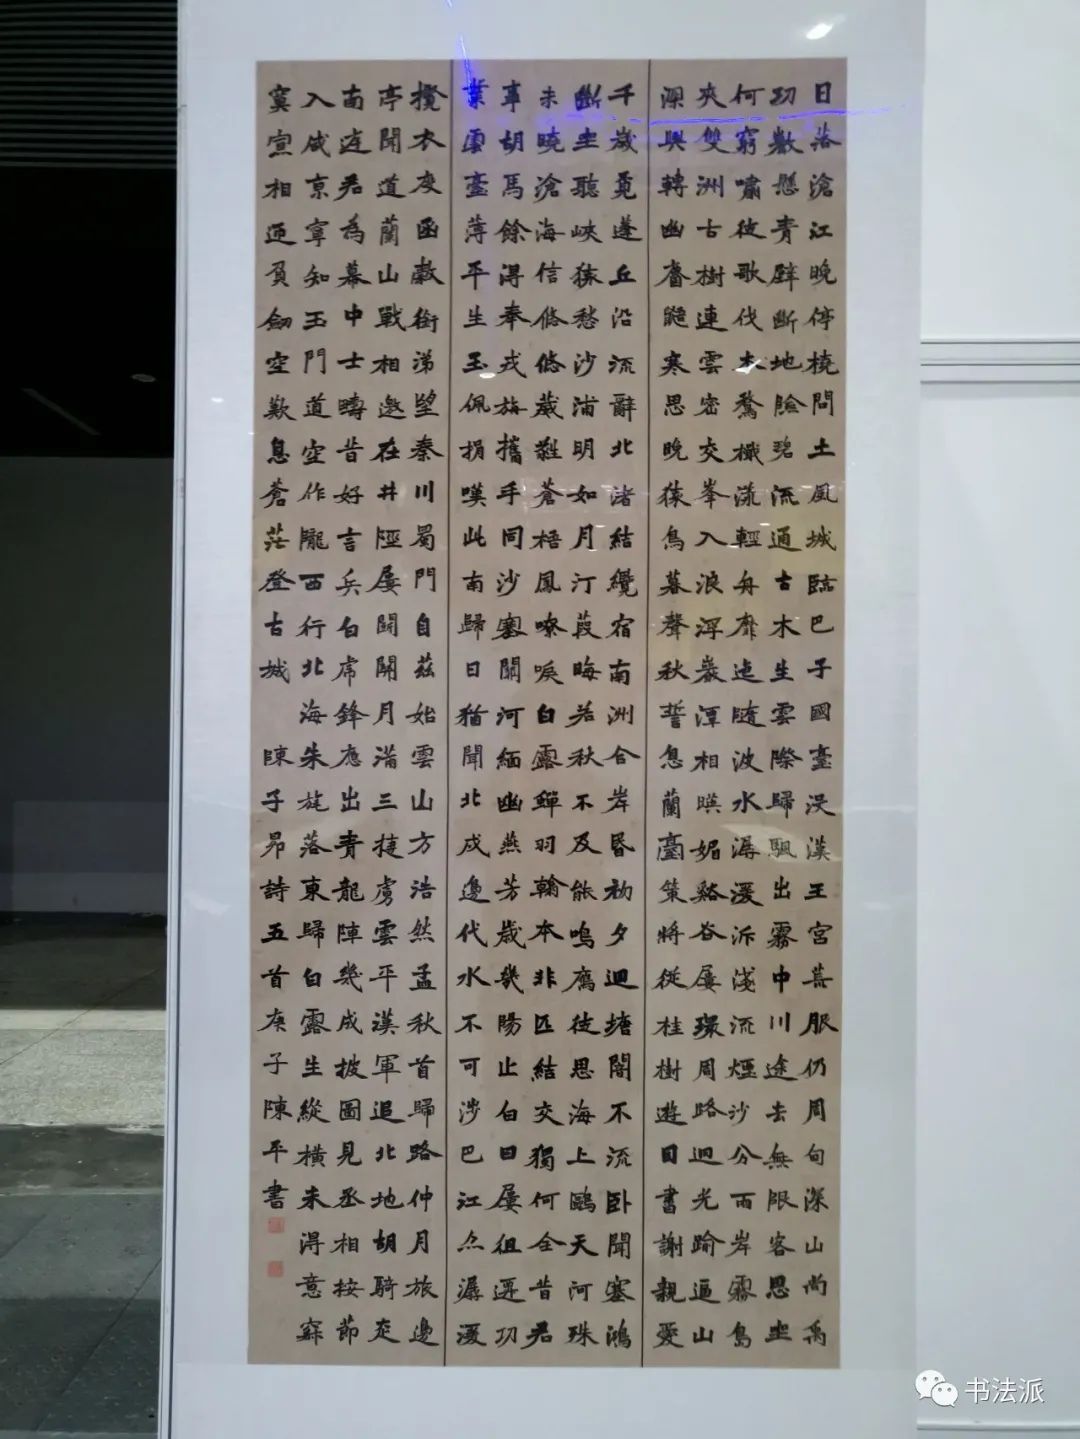 日落滄江晚停橈問土風城臨巴子國臺沒漢王宮荒服仍周甸深山尚禹
功巖懸青壁斷地險碧流通古木生雲際歸颿出霧中川途去無限客思坐
何窮嘯徒歌伐木鶩楫漾輕舟靡迤隨波水潺湲泝淺流煙沙分兩岸露島
夾雙洲古樹連雲密交峯入浪浮巖潭相暎媚谿谷屢環周路迥光踰逼山
深興轉幽麏鼯寒思晚猿鳥暮聲秋誓息蘭臺策將從桂樹遊因書謝親愛
千歲覓蓬丘沿流辭北渚結纜宿南洲合岸昏初夕迴塘闇不流臥聞塞鴻
斷坐聽峽猿愁沙浦明如月汀葭晦若秋不及能鳴鴈徒思海上鷗天河殊
未曉滄海信悠悠葳甤蒼梧鳳嘹唳白露蟬羽翰本非匹結交獨何全昔君
事胡馬餘得奉戎旃攜手同沙塞關河緬幽燕芳歲幾陽止白日屢徂遷功
業雲臺薄平生玉佩捐嘆此南歸日猶聞北戍邊代水不可涉巴江亦潺湲
攬衣度函轂銜涕望秦川蜀門自茲始雲山方浩然孟秋首歸路仲月旅邊
亭聞道蘭山戰相邀在井陘屢鬬關月滿三捷虜雲平漢軍追北地胡騎走
南庭君為幕中士疇昔好言兵白虎鋒應出青龍陣幾成披圖見丞相按節
入咸京寧知玉門道空作隴西行北海朱旄落東歸白露生縱橫未得意寂
寞寡相迎負劍空歎息蒼茫登古城 陳子昂詩五首庚子陳平書
书法派